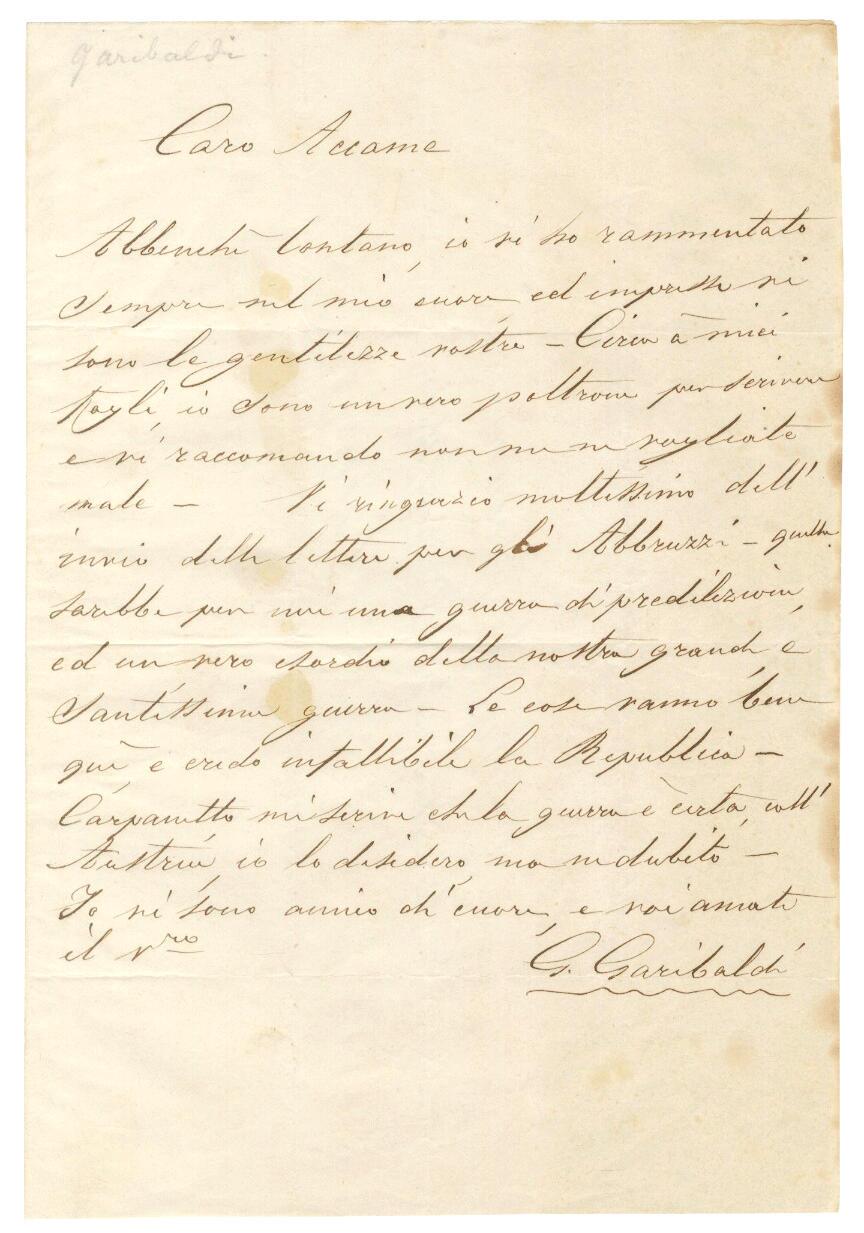 Garibaldi
Caro Accame
Abbenchè lontano, io vi ho rammentato
sempre nel mio cuore, ed impresse vi
sono le gentilezze vostre – Circa à miei
fogli, io sono un vero poltrone per scrivere
e vi raccomando non me ne vogliate
male – Vi ringrazio moltissimo dell'
invio delle lettere per gli Abbruzzi – quella
sarebbe per noi una guerra di predilezione,
ed un vero esordio della nostra grande, e
santissima guerra – Le cose vanno bene
quì, e credo infallibile la Republica –
Carpanetto mi scrive che la guerra è certa, coll'
Austria, io lo desidero, ma ne dubito –
Io vi sono amico di cuore, e voi amate
il vro
G. Garibaldi